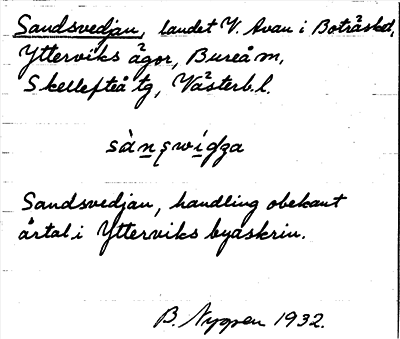 Sandsvedjan, landet V. Avan i Boträsket,
Ytterviks ägor, Bureå sn,
Skellefteå tg, Västerb.l.
Sandsvedjan, handling obekant
årtal i Ytterviks byaskrin.
B. Nygren 1932.